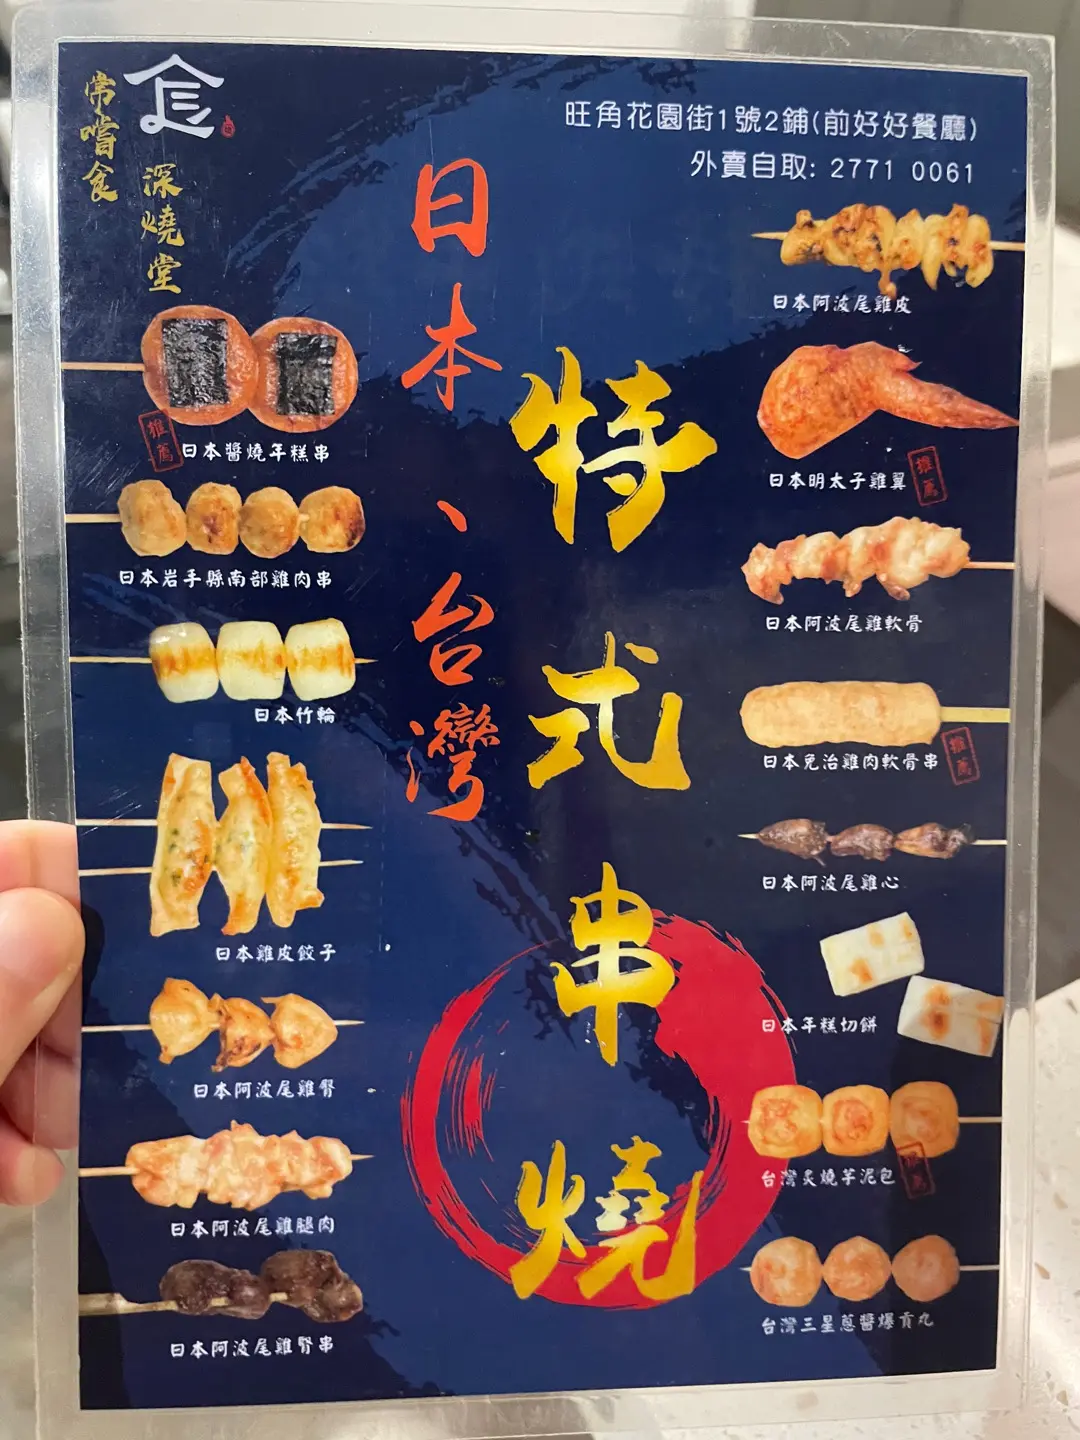 食
常嚐食
深燒堂
旺角花園街1號2鋪(前好好餐廳)
外賣自取: 2771 0061
日本、台灣
特式串燒
推薦
日本醬燒年糕串
日本岩手縣南部雞肉串
日本竹輪
日本雞皮餃子
日本阿波尾雞臀
日本阿波尾雞腿肉
日本阿波尾雞腎串
日本阿波尾雞皮
日本明太子雞翼
推薦
日本阿波尾雞軟骨
日本免治雞肉軟骨串
推薦
日本阿波尾雞心
日本年糕切餅
台灣炙燒芋泥包
推薦
台灣三星蔥醬爆貢丸